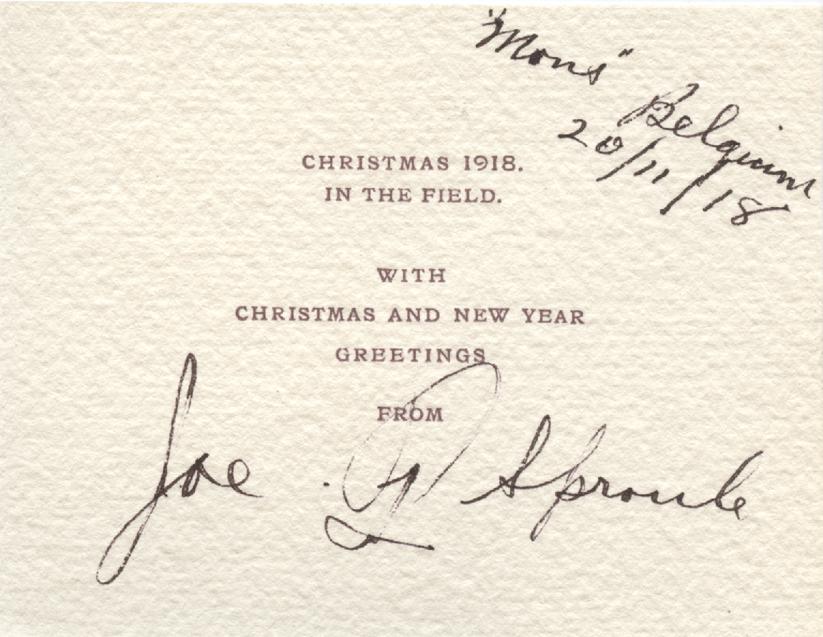 "Mons"
Belgium
20/11/18
CHRISTMAS 1918.
IN THE FIELD.
WITH
CHRISTMAS AND NEW YEAR
GREETINGS
FROM
Joe Sproule